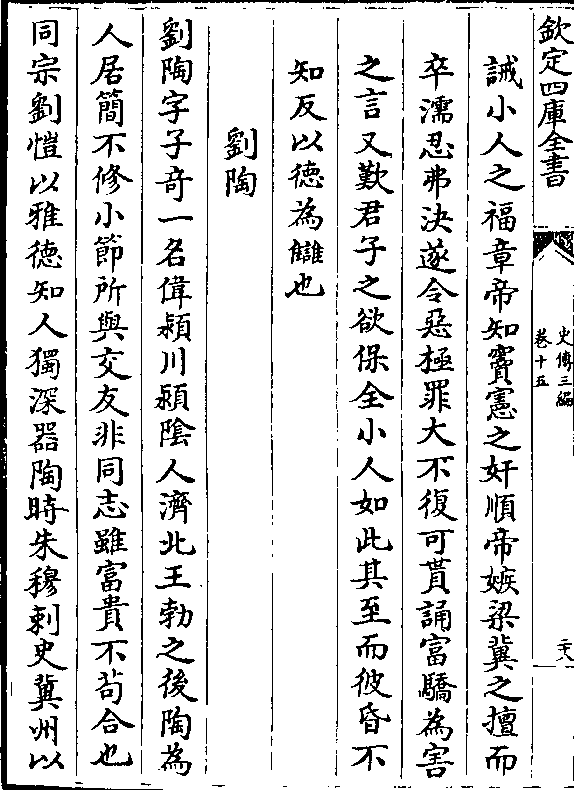 欽定四庫全書
史傳三編
卷十五
二十八
誡小人之福章帝知竇憲之奸順帝嫉梁冀之擅而
卒濡忍弗決遂令惡極罪大不復可貰誦富驕為害
之言又歎君子之欲保全小人如此其至而彼昏不
知反以德為讎也
劉陶
劉陶字子竒一名偉潁川潁陰人濟北王勃之後陶為
人居簡不修小節所與交友非同志雖富貴不茍合也
同宗劉愷以雅德知人獨深器陶時朱穆刺史冀州以